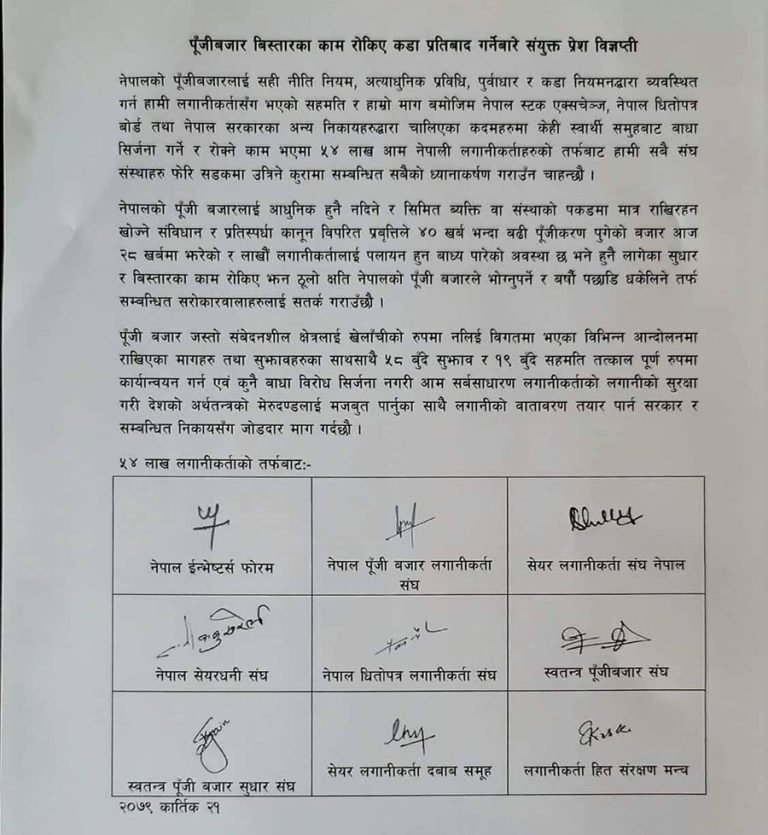 पूँजीबजार बिस्तारका काम रोकिए कडा प्रतिबाद गर्नेबारे संयुक्त प्रेश विज्ञप्ती
नेपालको पूँजीबजारलाई सही नीति नियम, अत्याधुनिक प्रविधि, पुर्वाधार र कडा नियमनद्वारा ब्यवस्थित
गर्न हामी लगानीकर्तासँग भएको सहमति र हाम्रो माग बमोजिम नेपाल स्टक एक्सचेञ्ज, नेपाल धितोपत्र
बोर्ड तथा नेपाल सरकारका अन्य निकायहरुद्वारा चालिएका कदमहरुमा केही स्वार्थी समुहबाट बाधा
सिर्जना गर्ने र रोक्ने काम भएमा ५४ लाख आम नेपाली लगानीकर्ताहरुको तर्फबाट हामी सबै संघ
संस्थाहरु फेरि सडकमा उत्रिने कुरामा सम्बन्धित सबैको ध्यानाकर्षण गराउँन चाहन्छौ ।
नेपालको पूँजी बजारलाई आधुनिक हुनै नदिने र सिमित ब्यक्ति वा संस्थाको पकडमा मात्र राखिरहन
खोज्ने संविधान र प्रतिस्पर्धा कानून विपरित प्रबृत्तिले ४० खर्ब भन्दा बढी पूँजीकरण पुगेको बजार आज
२८ खर्बमा झरेको र लाखौं लगानीकर्तालाई पलायन हुन बाध्य पारेको अवस्था छ भने हुनै लागेका सुधार
र बिस्तारका काम रोकिए झन ठूलो क्षति नेपालको पूँजी बजारले भोग्नुपर्ने र बर्षौं पछाडि धकेलिने तर्फ
सम्बन्धित सरोकारवालाहरुलाई सतर्क गराउँछौ ।
पूँजी बजार जस्तो संबेदनशील क्षेत्रलाई खेलाँचीको रुपमा नलिई विगतमा भएका विभिन्न आन्दोलनमा
राखिएका मागहरु तथा सुझावहरुका साथसाथै ५८ बुँदे सुझाव र १९ बुँदे सहमति तत्काल पूर्ण रुपमा
कार्यान्वयन गर्न एवं कुनै बाधा विरोध सिर्जना नगरी आम सर्बसाधारण लगानीकर्ताको लगानीको सुरक्षा
गरी देशको अर्थतन्त्रको मेरुदण्डलाई मजबुत पार्नुका साथै लगानीको वातावरण तयार पार्न सरकार र
सम्बन्धित निकायसँग जोडदार माग गर्दछौ ।
५४ लाख लगानीकर्ताको तर्फबाट:-
नेपाल ईन्भेष्टर्स फोरम
नेपाल पूँजी बजार लगानीकर्ता
संघ
सेयर लगानीकर्ता संघ नेपाल
नेपाल सेयरधनी संघ
नेपाल धितोपत्र लगानीकर्ता संघ
स्वतन्त्र पूँजीबजार संघ
स्वतन्त्र पूँजी बजार सुधार संघ
सेयर लगानीकर्ता दबाब समूह
लगानीकर्ता हित संरक्षण मन्च
२०७९ कार्तिक २१